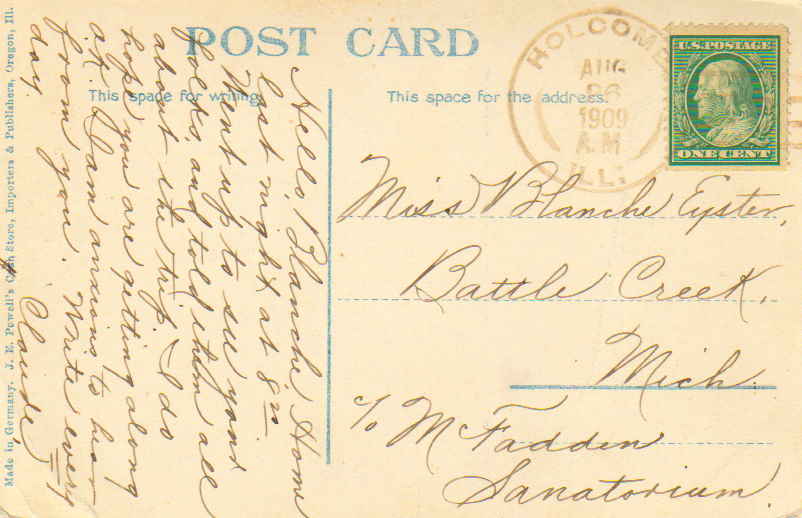 POST CARD
This space for writing.
This space for the address.
HOLCOMB
AUG
26
1909
A.M
ILL.
U.S. POSTAGE
ONE CENT
Hello Blanche Home
last night at 8 00.
Went up to see your
folks, and told them all
about the trip. I do
hope you are getting along
O.K. I am anxious to hear
from you. Write every
day. Claude,
Miss Blanche Eyster,
Battle Creek,
Mich.
c/o McFadden
Sanatorium.
Made in Germany. J. E. Powell's Cash Store, Importers & Publishers, Oregon, Ill.